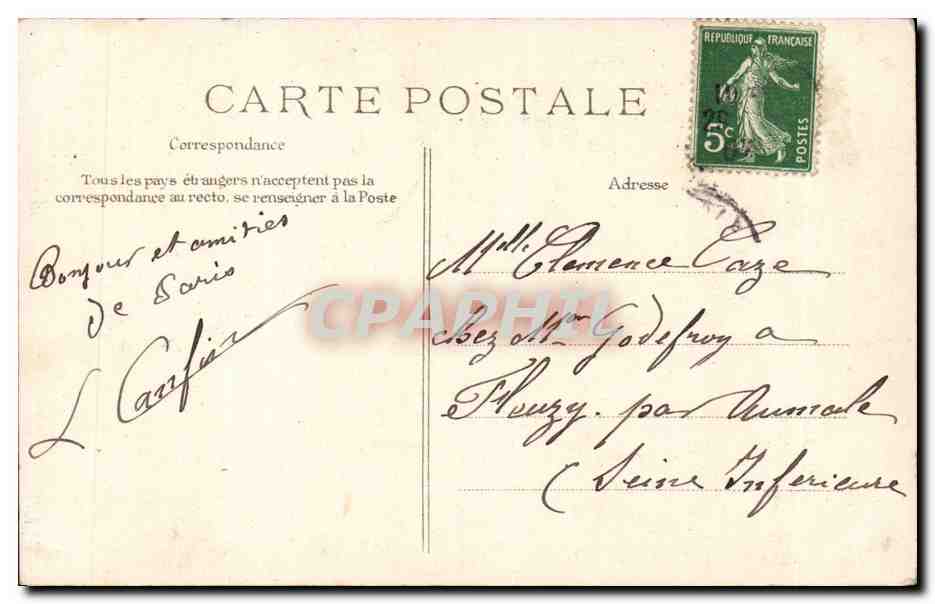 CARTE POSTALE
RÉPUBLIQUE FRANÇAISE
5c
POSTES
Correspondance
Tous les pays étrangers n'acceptent pas la
correspondance au recto, se renseigner à la Poste
Adresse
Bonjour et amitiés
de Paris
L
Melle Clemence Caze
chez Mr Godefroy a
Flouzy par Aumale
(Seine Inferieure
CPAPHIL